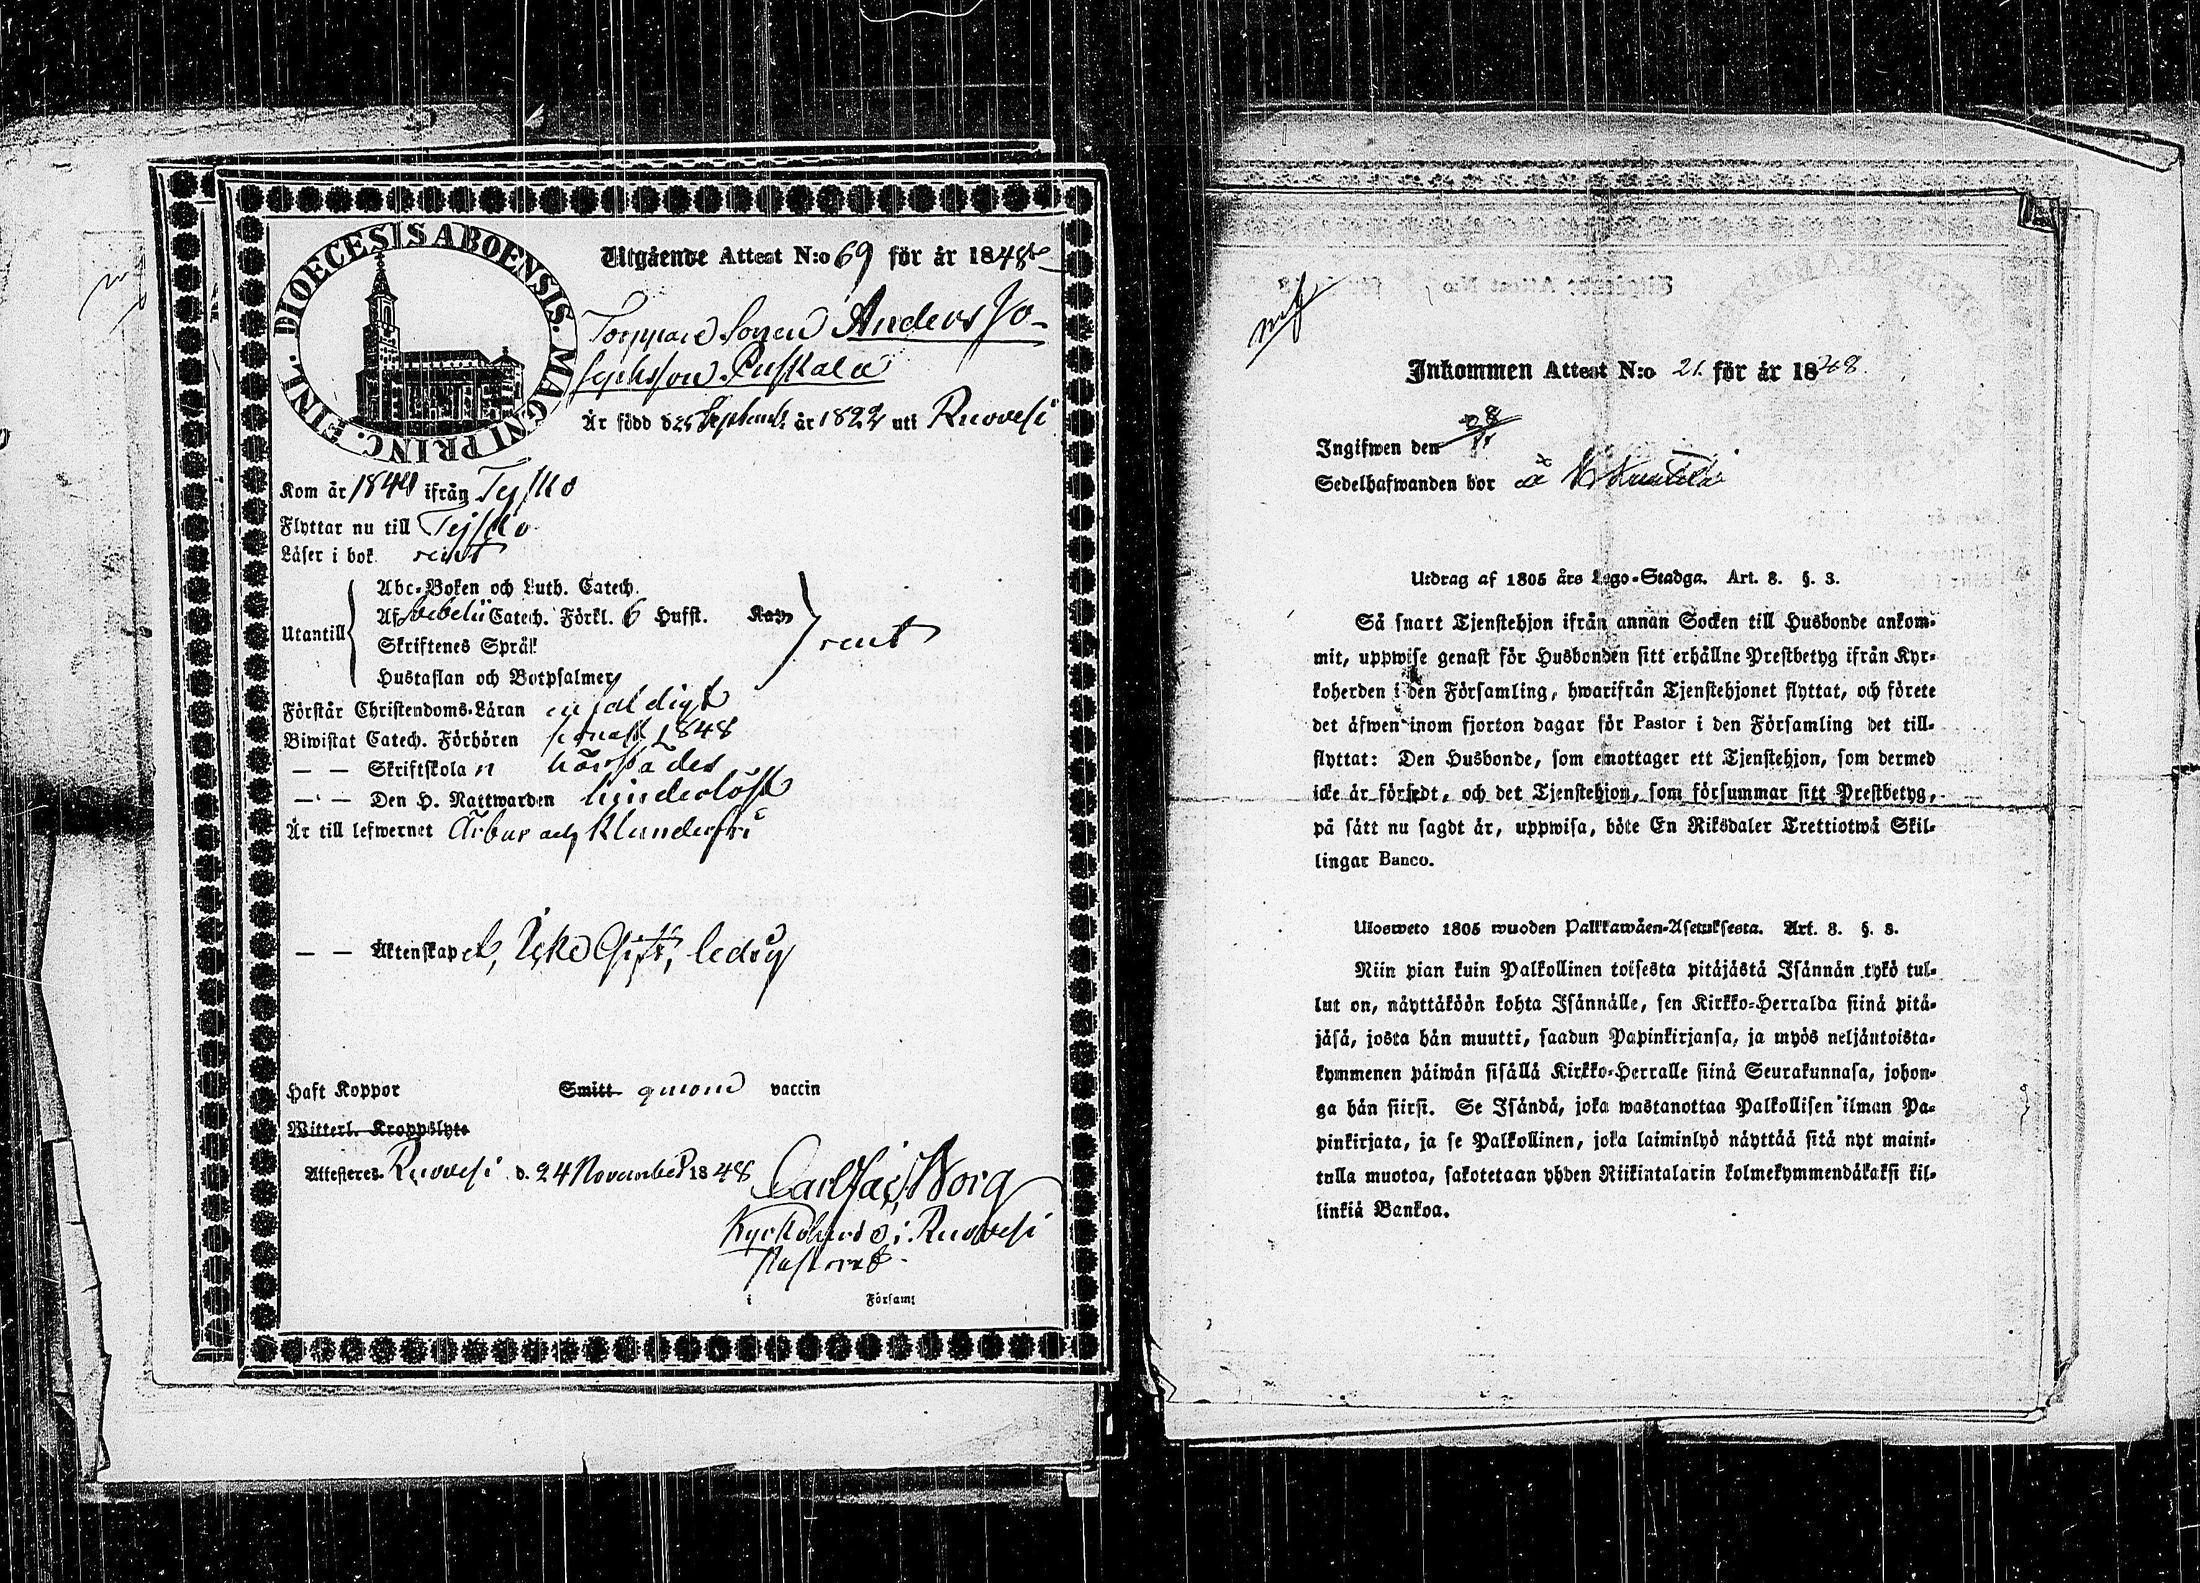 DIOECESIS ABOENSIS. MAGNI PRINC. FINL.
Utgående Attest N:o 69 för år 1848
Torppare Sonen Anders Jo-
sephsson Puskala
Är född d 25 September år 1822 uti Ruovesi
Kom år 1844 ifrån Tejsko
Flyttar nu till Tejsko
Läser i bok rent
Utantill
Abc-Boken och Luth. Catech.
Af Svebelii Catech. Förkl. 6 Hufst. Kap
Skriftenes Språk
Hustaflan och Botpsalmer
rent
Förstår Christendoms-Läran enfaldigt
Biwistat Catech. Förhören senast 1848
— — Skriftskolan härstädes
— — Den H. Nattwarden hinderlöst
Är till lefwernet Ärbar och klanderfri
— — Äktenskap Icke Gift, ledig
Haft Koppor Smitt genom vaccin
Witterl. Kroppslyte
Attesteras. Ruovesi d. 24 November 1848
Carl Jac. Borg
Kyrkoherde i Ruovesi
Pastorat
i Församl
Inkommen Attest N:o 21 för år 1848
Ingifwen den
Sedelhafwanden bor
Utdrag af 1805 års Lego-Stadga. Art. 8. §. 3.
Så snart Tjenstehjon ifrån annan Socken till Husbonde ankom-
mit, uppwise genast för Husbonden sitt erhållne Prestbetyg ifrån Kyr-
koherden i den Församling, hwarifrån Tjenstehjonet flyttat, och förete
det äfwen inom fjorton dagar för Pastor i den Församling det till-
flyttat: Den Husbonde, som emottager ett Tjenstehjon, som dermed
icke är försedt, och det Tjenstehjon, som försummar sitt Prestbetyg,
på sätt nu sagdt är, uppwisa, böte En Riksdaler Trettiotwå Skil-
lingar Banco.
Ulosweto 1805 wuoden Palkkawäen-Asetuksesta. Art. 8. §. 8.
Niin pian kuin Palkollinen toisesta pitäjästä Isännän tykö tul-
lut on, näyttäköön kohta Isännälle, sen Kirkko-Herralda siinä pitä-
jäsä, josta hän muutti, saadun Papinkirjansa, ja myös neljäntoista-
kymmenen päiwän sisällä Kirkko-Herralle siinä Seurakunnasa, johon-
ga hän siirsi. Se Isändä, joka wastanottaa Palkollisen ilman Pa-
pinkirjata, ja se Palkollinen, joka laiminlyö näyttää sitä nyt maini-
tulla muotoa, sakotetaan yhden Riikintalarin kolmekymmendäkaksi kil-
linkiä Bankoa.